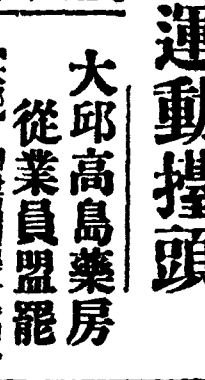 運動擡頭
大邱高島藥房
從業員盟罷